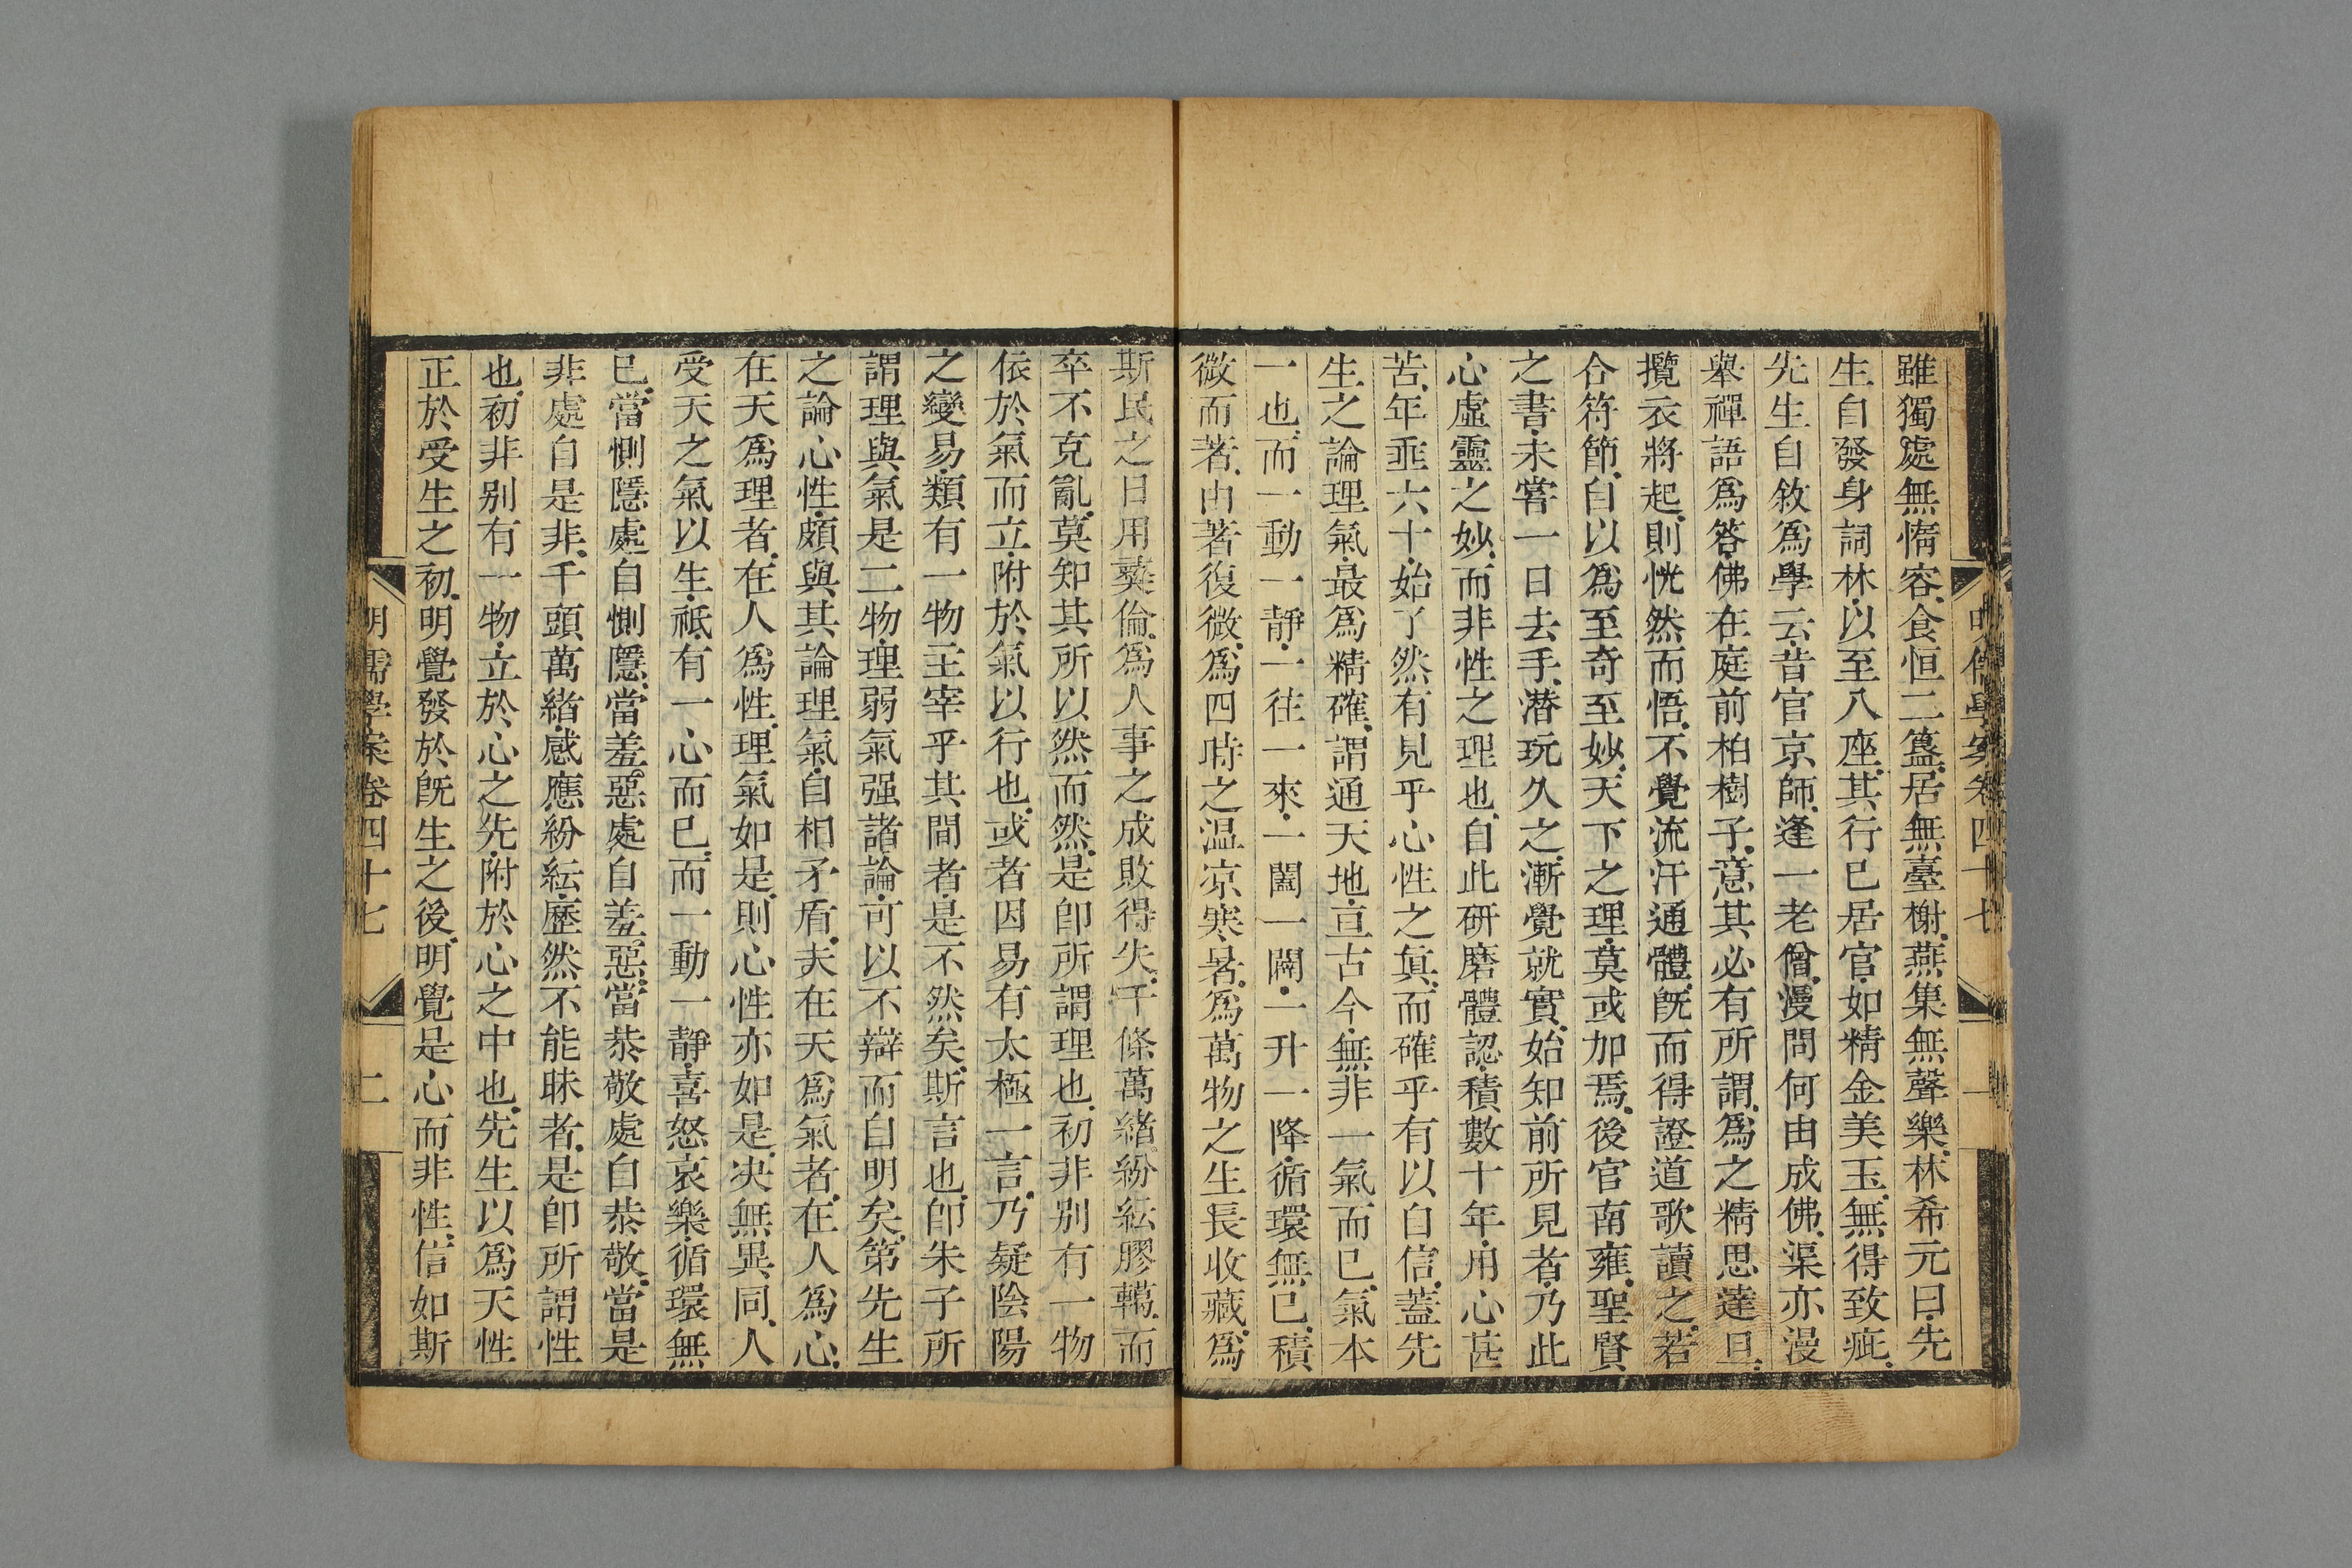 明儒學案卷四十七
一
雖獨處無惰容食恒二簋居無臺榭燕集無聲樂林希元曰先
生自發身詞林以至八座其行已居官如精金美玉無得致疵
先生自敘爲學云昔官京師逢一老僧漫問何由成佛渠亦漫
舉禪語爲答佛在庭前柏樹子意其必有所謂爲之精思達旦
攬衣將起則恍然而悟不覺流汗通體旣而得證道歌讀之若
合符節自以爲至奇至妙天下之理莫或加焉後官南雍聖賢
之書未甞一日去手潛玩久之漸覺就實始知前所見者乃此
心虛靈之妙而非性之理也自此研磨體認積數十年用心甚
苦年垂六十始了然有見乎心性之眞而確乎有以自信蓋先
生之論理氣最爲精確謂通天地亘古今無非一氣而已氣本
一也而一動一靜一往一來一闔一闢一升一降循環無已積
微而著由著復微爲四時之温凉寒暑爲萬物之生長收藏爲
斯民之日用彞倫爲人事之成敗得失千條萬緒紛紜膠轕而
卒不克亂莫知其所以然而然是卽所謂理也初非别有一物
依於氣而立附於氣以行也或者因易有太極一言乃疑陰陽
之變易類有一物主宰乎其間者是不然矣斯言也卽朱子所
謂理與氣是二物理弱氣强諸論可以不辯而自明矣第先生
之論心性頗與其論理氣自相矛盾夫在天爲氣者在人爲心
在天爲理者在人爲性理氣如是則心性亦如是决無異同人
受天之氣以生祗有一心而已而一動一靜喜怒哀樂循環無
已當惻隱處自惻隱當羞惡處自羞惡當恭敬處自恭敬當是
非處自是非千頭萬緒感應紛紜歷然不能昧者是卽所謂性
也初非别有一物立於心之先附於心之中也先生以爲天性
正於受生之初明覺發於旣生之後明覺是心而非性信如斯
明儒學案卷四十七
二